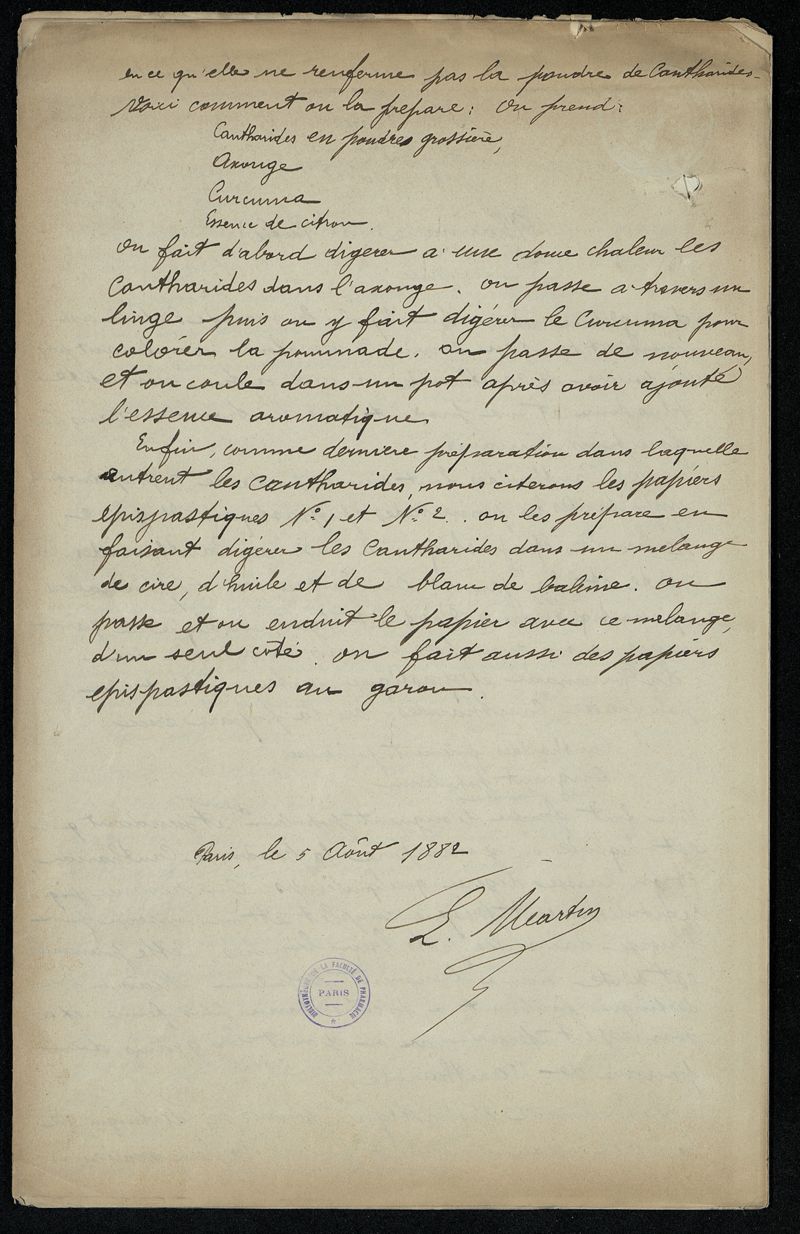 en ce qu'elle ne renferme pas la poudre de Cantharides.
Voici comment on la prepare: On prend:
Cantharides en poudres grossière,
Axonge
Curcuma
Essence de citron.
On fait d'abord digerer a une douce chaleur les
Cantharides dans l'axonge. on passe a travers un
linge puis on y fait digérer le Curcuma pour
colorer la pommade. on passe de nouveau,
et on coule dans un pot après avoir ajouté
l'essence aromatique.
Enfin, comme derniere préparation dans laquelle
entrent les cantharides, nous citerons les papiers
épispastiques N° 1 et N° 2. on les prépare en
faisant digérer les Cantharides dans un melange
de cire, d'huile et de blanc de baleine. on
passe et on enduit le papier avec ce melange,
d'un seul coté. on fait aussi des papiers
epispastiques au garou.
Paris, le 5 Aôut 1882
L. Martin
BIBLIOTHÈQUE DE LA FACULTÉ DE PHARMACIE
PARIS